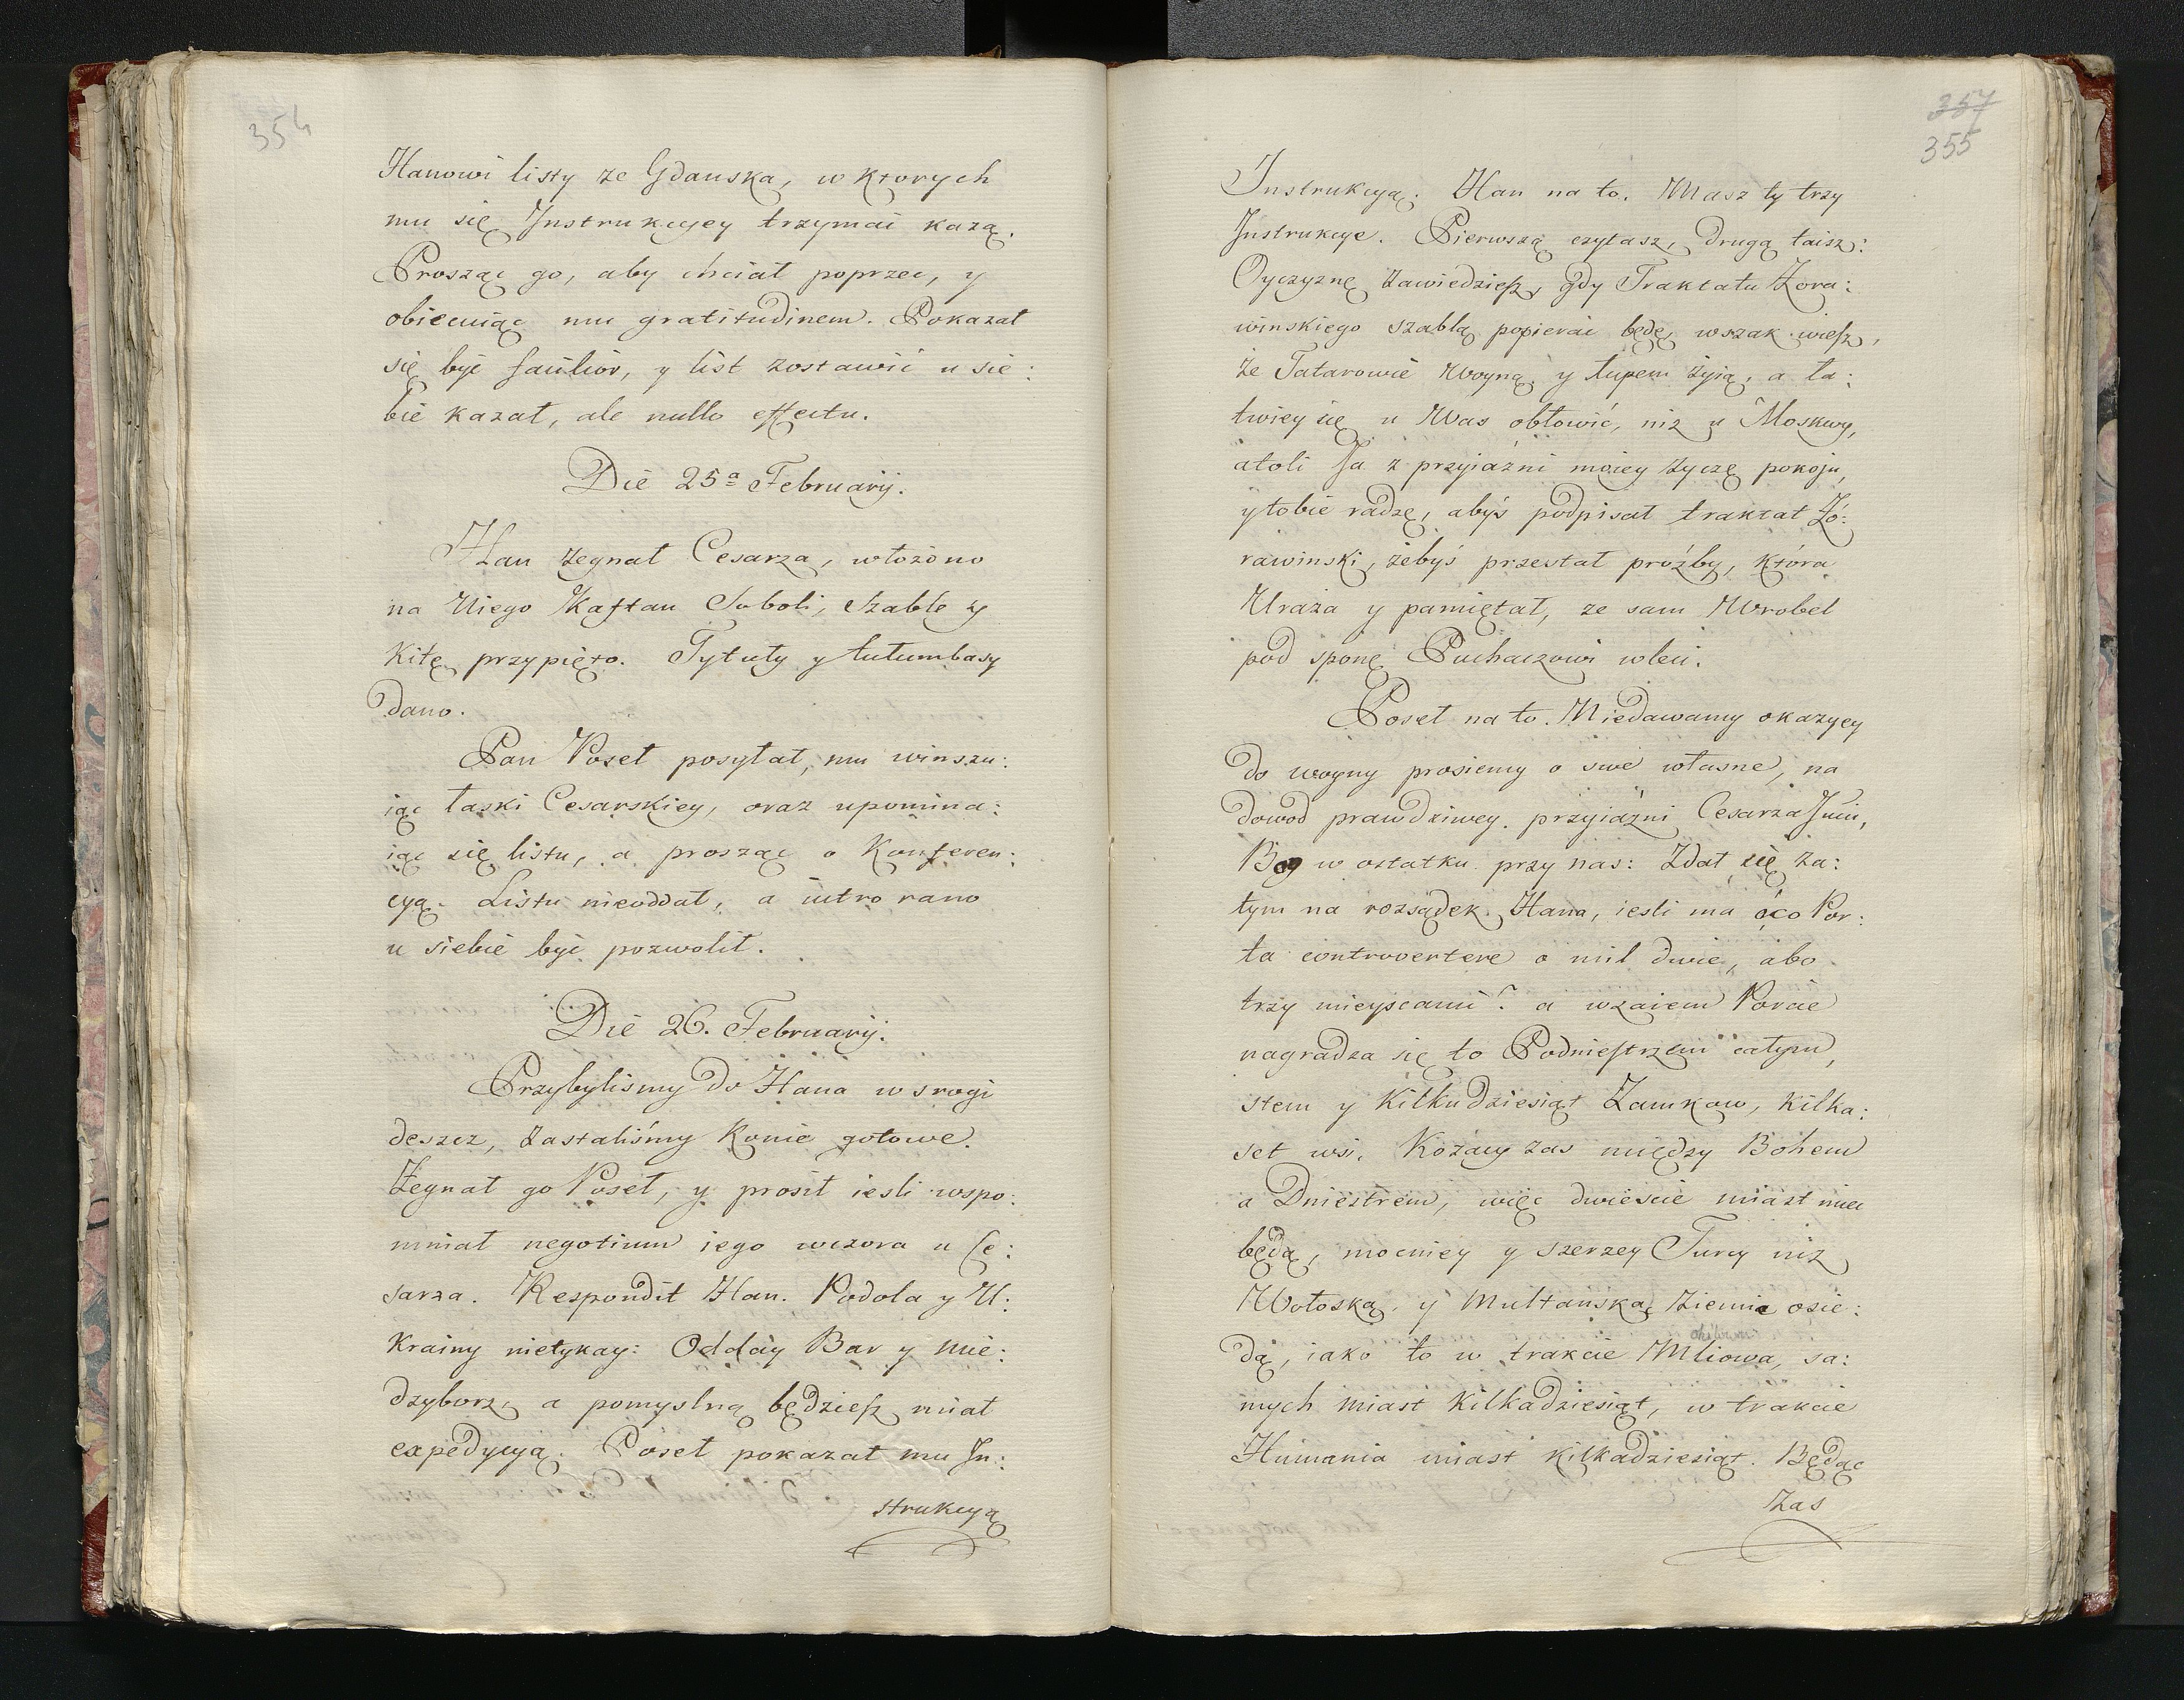 354
Hanowi listy ze Gdanska, w ktorych
mu się Instrukcyey trzymać każą.
Prosząc go, aby chciał poprzec, y
obiecuiąc mu gratitudinem. Pokazał
się być faulior, y list zostawić u sie:
bie kazał, ale nullo effectu.
Die 25ª February.
Han żegnał Cesarza, włożono
na Niego Kaftan Soboli, Szablę y
Kitę przypięto. Tytuły y tułumbasy
dano.
Pan Poseł posyłał, mu winszu:
iąc łaski Cesarskiey, oraz upomina:
iąc się listu, a prosząc o Konferen:
cyą. Listu nieoddał, a iutro rano
u siebie być pozwolił.
Die 26. February.
Przybylismy do Hana w srogi
deszcz, zastaliśmy Konie gotowe.
Żegnał go Poseł, y prosił iesli wspo:
mniał negotium iego wczora u Ce:
sarza. Respondit Han. Podola y U:
krainy nietykay: Odday Bar y Mie:
dzyborz, a pomyslną będziesz miał
expedycyą. Poseł pokazał mu In:
strukcyą
357
355
Instrukcyą. Han na to. Masz ty trzy
Instrukcye. Pierwszą czytasz, drugą taisz:
Oyczyznę zawiedziesz, gdy Traktatu Zora:
winskiego szablą popierać będę, wszak wiesz,
że Tatarowie Woyną y łupem żyią, a ła:
twiey się u Was obłowić, niz u Moskwy,
atoli Ja z przyiaźni moiey życzę pokoju,
y tobie radzę, abyś podpisał traktat Żó:
rawinski, żebyś przestał próźby, która
Uraża y pamiętał, ze sam Wrobel
pod sponę Puchaczowi wleci.
Poseł na to. Niedawamy okazyey
do woyny prosiemy o swe własne, na
dowod prawdziwey przyiaźni Cesarza Jmci,
Bog w ostatku przy nas: Zdał się za:
tym na rozsądek Hana, iesli ma oco Por:
ta controvertere o mil dwie, abo
trzy mieyscami? a wzaiem Porcie
nagradza się to Podniestrzem całym,
stem y Kilkudziesiąt Zamkow, kilka:
set wsi. Kozacy zas między Bohem
a Dniestrem, więc dwiescie miast miec
będą, mocniey y szerzey Turcy niz
Wołoską y Multanską Ziemię osie:
dą, iako to w trakcie Mliowa, sa:
mych miast Kilkadziesiąt, w trakcie
Humania miast kilkadziesiąt. Będąc
Zas